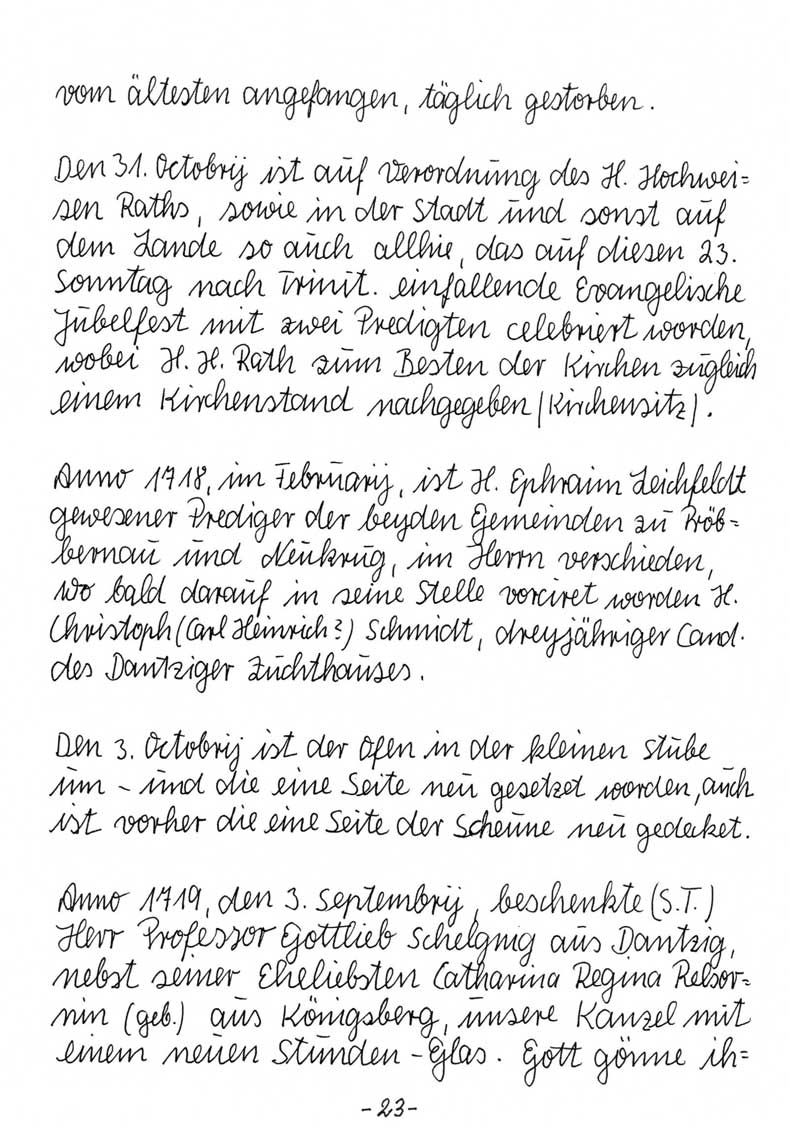 vom ältesten angefangen, täglich gestorben.
Den 31. Octobrij ist auf Verordnung des H. Hochwei=
sen Raths, sowie in der Stadt und sonst auf
dem Lande so auch allhie, das auf diesen 23.
Sonntag nach Trinit. einfallende Evangelische
Jubelfest mit zwei Predigten celebriert worden,
wobei H. H. Rath zum Besten der Kirchen zugleich
einem Kirchenstand nachgegeben (Kirchensitz).
Anno 1718, im Februarij, ist H. Ephraim Leichfeldt
gewesener Prediger der beyden Gemeinden zu Pröb=
bernau und Neukrug, im Herrn verschieden,
wo bald darauf in seine Stelle vociret worden H.
Christoph (Carl Heinrich?) Schmidt, dreyjähriger Cand.
des Dantziger Zuchthauses.
Den 3. Octobrij ist der Ofen in der kleinen Stube
um - und die eine Seite neu gesetzet worden, auch
ist vorher die eine Seite der Scheune neu gedecket.
Anno 1719, den 3. Septembrij, beschenkte (S.T.)
Herr Professor Gottlieb Schelgnig aus Dantzig,
nebst seiner Eheliebsten Catharina Regina
nin (geb.) aus Königsberg, unsere Kanzel mit
einem neuen Stunden-Glas. Gott gönne ih=
-23-